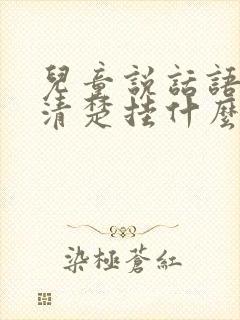 兒童說話語
清楚挂什麼
染極蒼紅